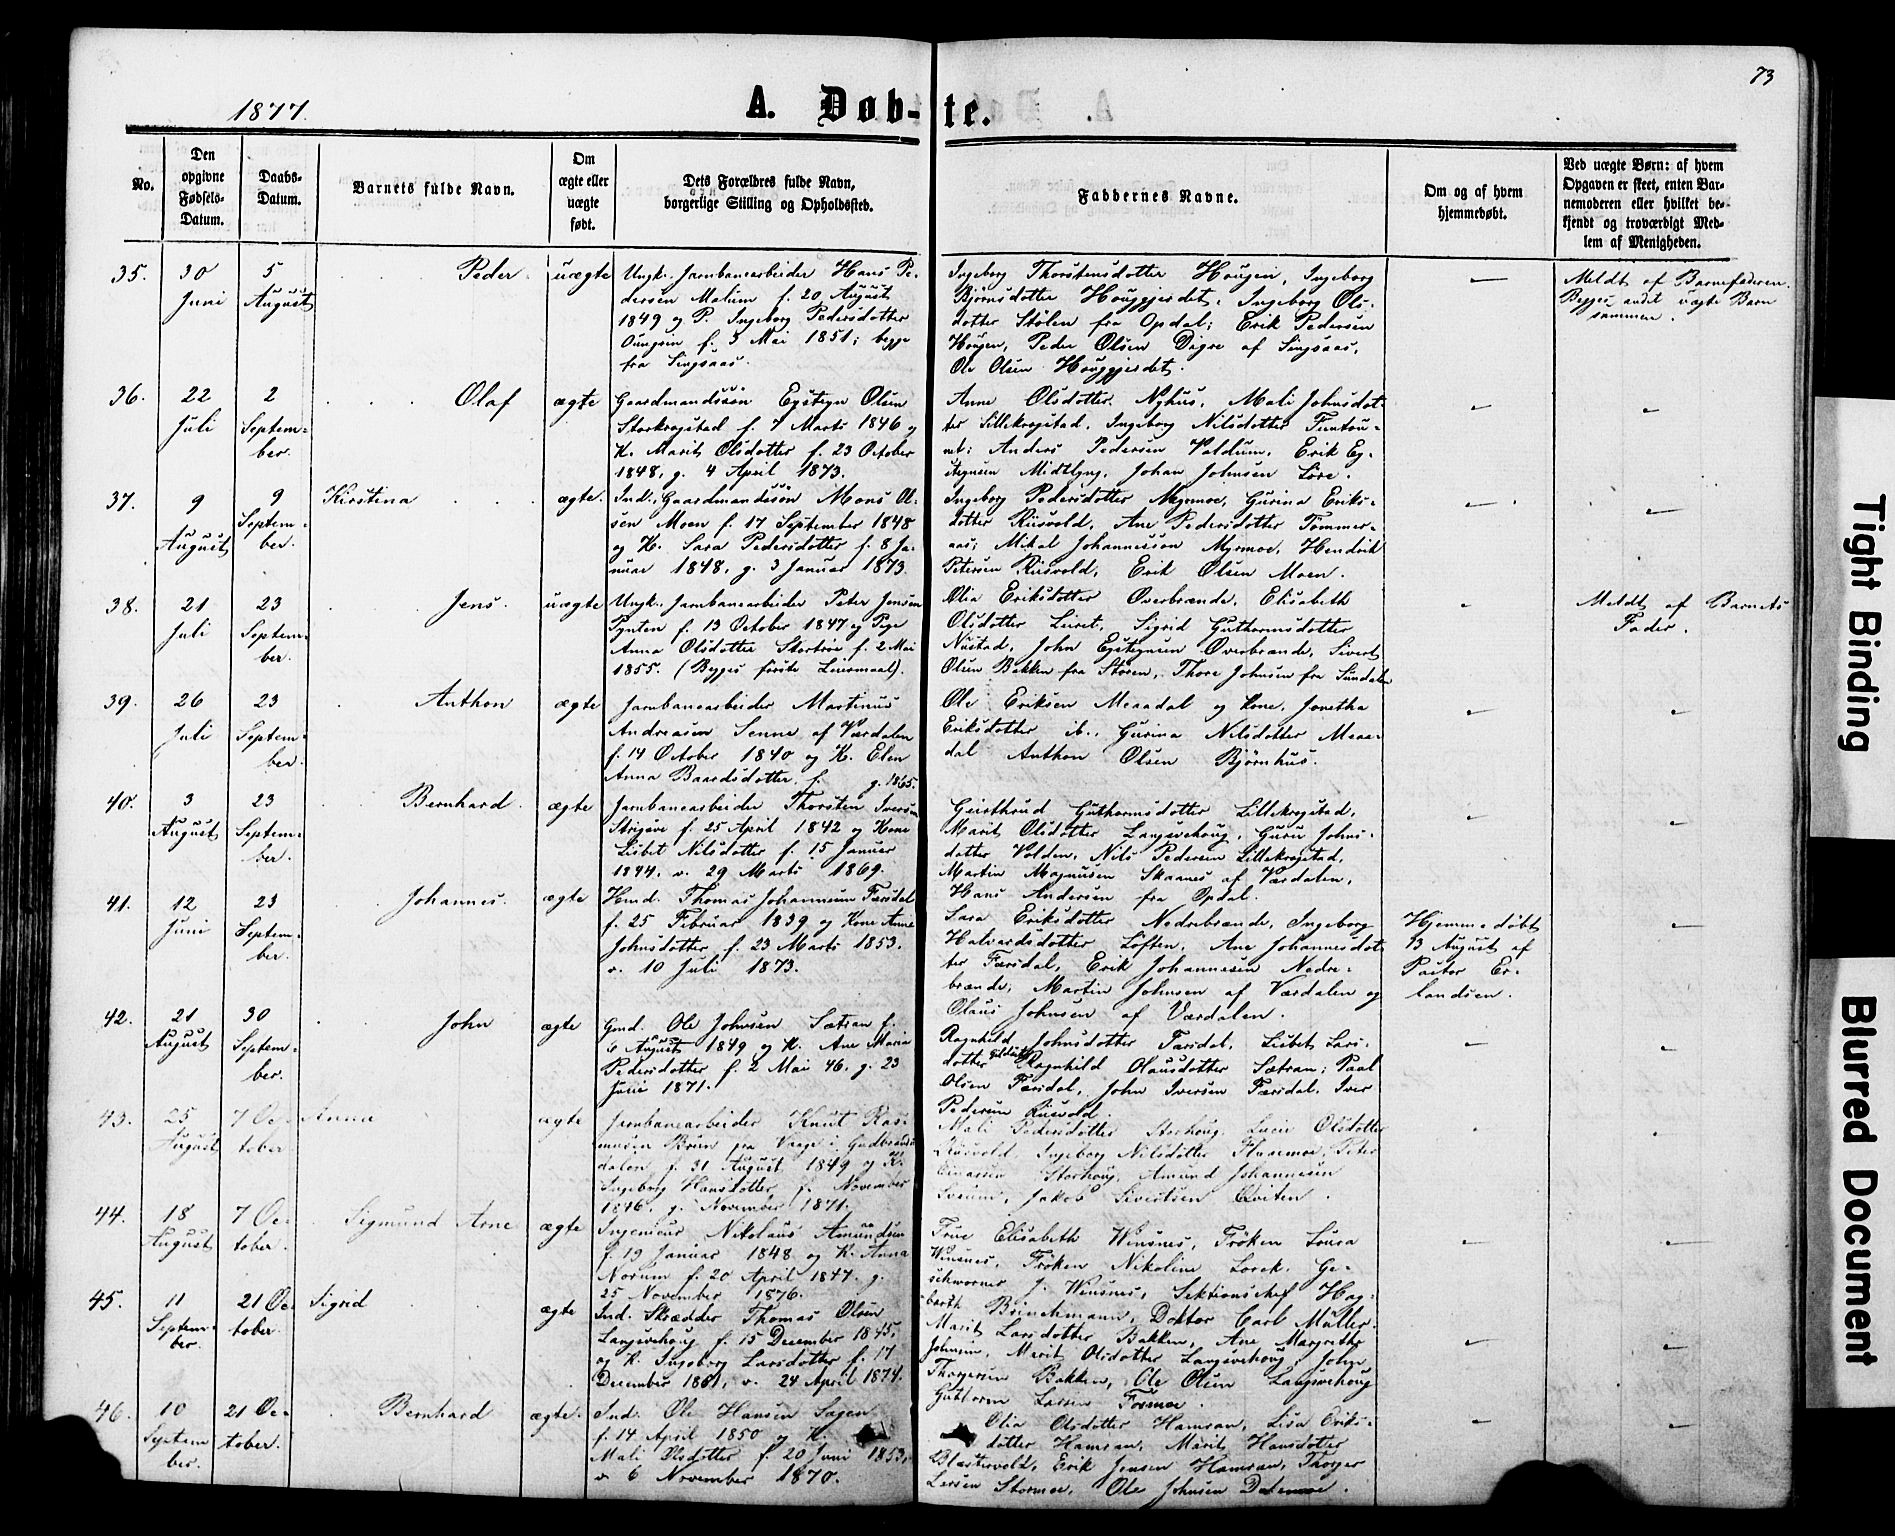 73
1877.
A. Døb-te.
No.
Den opgivne Fødsels-Datum.
Daabs-Datum.
Barnets fulde Navn.
Om ægte eller uægte født.
Dets Forældres fulde Navn, borgerlige Stilling og Opholdssted.
Faddernes Navne.
Om og af hvem hjemmedøbt.
Ved uægte Børn: af hvem Opgaven er skeet, enten Barnemoderen eller hvilket bekjendt og troværdigt Medlem af Menigheden.
35. 30 Juni 5 August Peder uægte
Ungk. Jernbanearbeider Hans Pe-
dersen Malum f. 20 August
1849 og P. Ingeborg Pedersdotter
f. 3 Mai 1851; begge
fra Singsaas.
Ingeborg Thorstensdotter Hougen, Ingeborg
Bjørnsdotter Houggjerdet, Ingeborg Ols-
dotter Stølen fra Opdal; Erik Pedersen
Hougen, Peder Olsen Digre af Singsaas,
Ole Olsen Houggjerdet.
—
Meldt af Barnefaderen.
Begges andet uægte Barn
sammen.
36. 22 Juli 2 Septem-
ber. Olaf ægte
Gaardmandssøn Egstein Olsen
Storkrogstad f. 7 Marts 1846 og
K. Marit Olsdotter f. 23 October
1848, g. 4 April 1873.
Anne Olsdotter Nyhus, Mali Johnsdot-
ter Lillekrogstad, Ingeborg Nilsdotter
Anders Pedersen Voldum, Erik Eg-
steinsen Midtlyng, Johan Johnsen Løre.
—
—
37. 9 August 9 Septem-
ber. Kirstina ægte.
Ind., Gaardmandssøn Mons Ol-
sen Moen f. 17 September 1848
og K. Sara Pedersdotter f. 8 Ja-
nuar 1848, g. 3 Januar 1873.
Ingeborg Pedersdotter Myrmoe, Gurina Eriks-
dotter Riisvold, Ane Pedersdotter Tømmer-
aas; Mikal Johannesson Myrmoe, Hendrik
Petersen Riisvold, Erik Olsen Moen.
—
—
38. 21 Juli 23 Septem-
ber. Jens. uægte
Ungk. Jernbanearbeider Peter Jensen
Pynten f. 13 October 1847 og Pige
Anna Olsdotter Stortrøe f. 2 Mai
1855. (Begges første Leiermaal).
Olia Eriksdotter Overbrænde, Elisabeth
Olsdotter Leiret, Sigrid Guthormsdotter
Nustad, John Egsteinsen Overbrænde, Sivert
Olsen Bakken fra Støren, Thore Johnsen fra Sundalen
—
Meldt af Barnets
Fader.
39. 26 Juli 23 Septem-
ber. Anthon ægte
Jernbanearbeider Martinus
Andreasen Senne af Værdalen
f. 14 October 1840 og K. Elen
Anna Baardsdotter f. g. 1865.
Ole Eriksen Meaadal og Kone, Jonetha
Eriksdotter ib., Gurina Nilsdotter Meaa-
dal Anthon Olsen Bjørnhus.
—
—
40. 3 August 23 Septem-
ber. Bernhard. ægte
Jernbanearbeider Thorsten Iversen
f. 25 April 1842 og Kone
Lisbet Nilsdotter f. 15 Januar
1844, v. 29 Marts 1869.
Geirthrud Guthormsdotter Lillekrogstad,
Marit Olsdotter Langsvehoug, Guru Johns-
dotter Volden, Nils Pedersen Lillekrogstad,
Martin Magnusen Skaanes af Værdalen,
Hans Andersen fra Opdal.
—
—
41. 12 Juni 23 Septem-
ber. Johannes. ægte
Hmd. Thomas Johannesen Færsdal
f. 25 Februar 1839 og Kone Anne
Johnsdotter f. 23 Marts 1853.
v. 10 Juli 1873.
Sara Eriksdotter Nedrebrænde, Ingeborg
Halvardsdotter Løften, Ane Johannesdot-
ter Færsdal, Erik Johannesen Nedre-
brænde, Martin Johnsen af Værdalen og
Olaus Johnsen af Værdalen.
Hjemmedøbt
13 August af
Pastor Er-
landsen.
—
42. 21 August 30 Septem-
ber. John ægte
Gmd. Ole Johnsen Sætran f.
6 August 1849 og K. Ane Maria
Pedersdotter f. 2 Mai 46. g. 23
Juni 1871.
Ragnhild Johnsdotter Færsdal, Lisbet Lars-
dotter Ragnhild Olausdotter Sætran; Paal
Olsen Færsdal, John Iversen Færsdal, Iver
Pedersen Riisvold.
—
—
43. 25 August 7 Oc-
tober. Anna ægte
Jernbanearbeider Knut Ras-
musen Brun fra Vaage i Gudbrands-
dalen f. 31 August 1849 og K.
Ingeborg Hansdotter f. November
1846, g. November 1871.
Mali Pedersdotter Storhoug, Olsdotter
Riisvold, Ingeborg Nilsdotter Peter
Storhoug, Amund Johannesen
Jakob Sivertsen Qviten.
44. 18 August 7 Oc-
tober. Sigmund Arne ægte
Ingenieur Nikolaus Amundsen
f. 19 Januar 1848 og K. Anna
Norum f. 20 April 1847. g.
25 November 1876.
Frue Elisabeth Winsnes, Frøken Lovisa
Winsnes, Frøken Nikoline Lorck, Ge-
schworner J. Winsnes, Sektionschef Hag-
barth Brinchmann, Doktor Carl Müller.
—
—
45. 11 Septem-
ber. 21 Oc-
tober. Sigrid ægte
Ind. Skrædder Thomas Olsen
Langsvehoug f. 15 December 1845,
og K. Ingeborg Larsdotter f. 17
December 1851, v. 24 April 1874.
Marit Larsdotter Bakken, Ane Margrethe
Johnsen, Marit Olsdotter Langsvehoug, John
Thoresen Bakken, Ole Olsen Langsvehoug
Guttorm Larsen Formoe.
—
—
46. 10 Septem
ber. 21 Oc-
tober. Bernhard ægte.
Ind. Ole Hansen Sagen
f. 14 April 1850 og K.
Mali Olsdotter f. 20 Juni 1853,
v. 6 November 1870.
Olia Olsdotter Hamran, Lisa Eriks-
dotter Hamran, Marit Hansdotter
Blæstervold, Erik Jensen Hamran, Thorger
Larsen Stormoe, Ole Johnsen
—
—
Tight Binding
Blurred Document